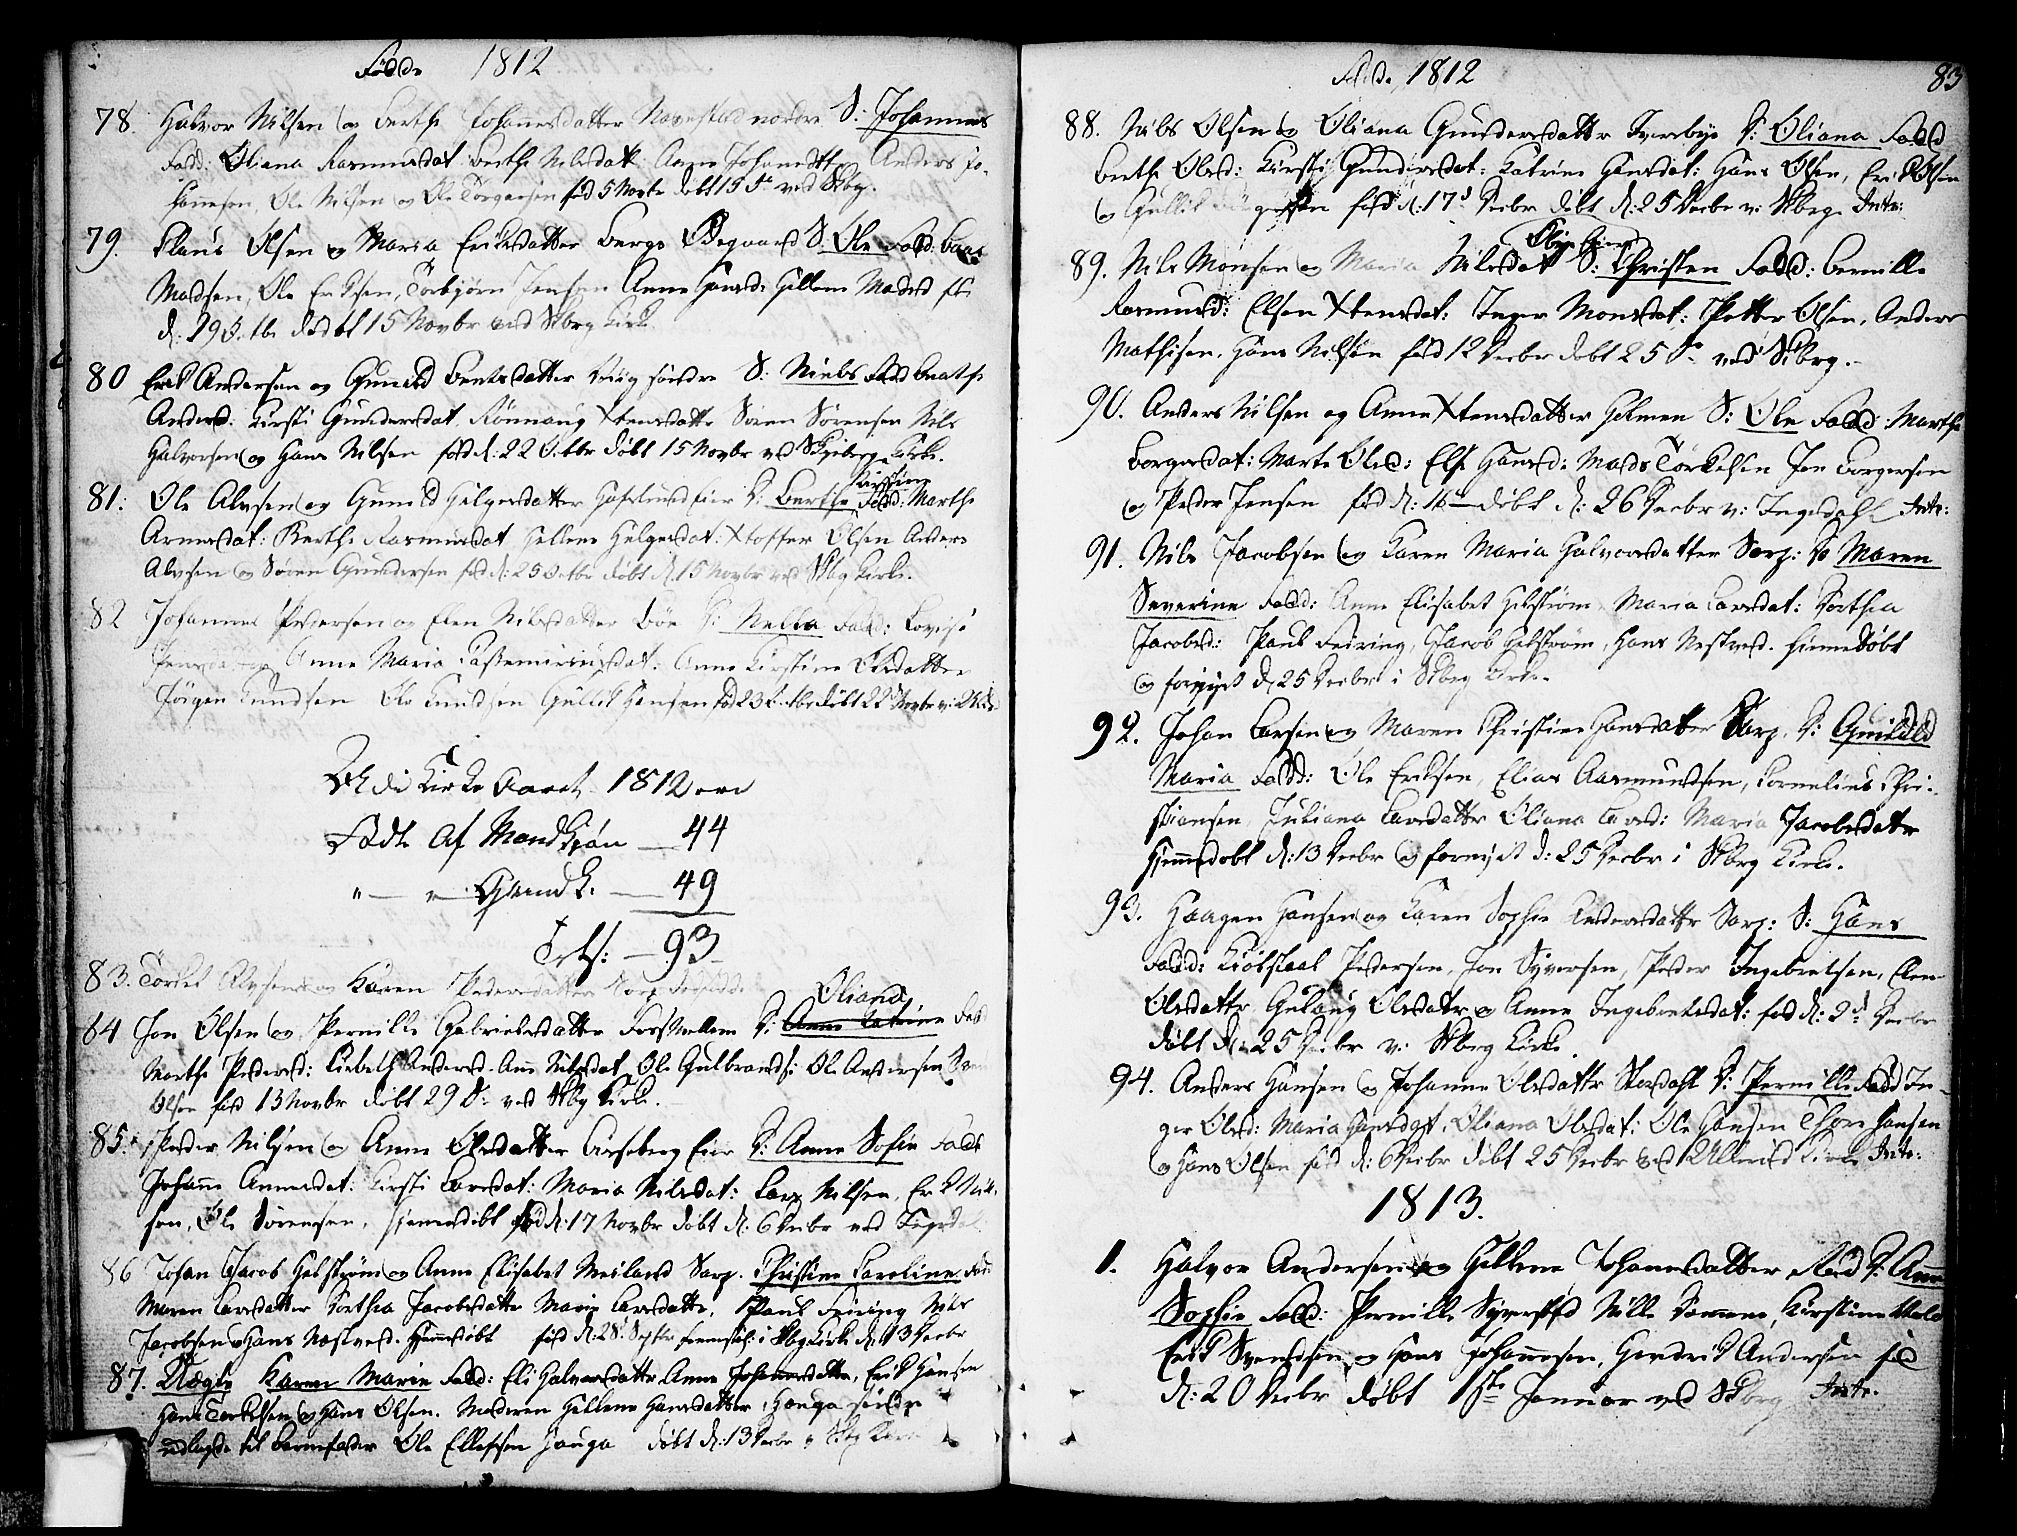 Fødde 1812
78. Halvor Nilsen og Berthe Johannesdatter Navestad nordre S: Johannes
Fadd: Oliana Rasmusdat: Berthe Nilsdat: Anne Johannesdtr Anders Jo-
hannesen, Ole Nilsen og Ole Torgersen fød 5 Novbr døbt 15 D: ved Skbrg.
79. Claus Olsen og Maria Eriksdatter Berge Ødegaard S. Ole Fadd: Lars
Madsen, Ole Eriksen, Torbjørn Jensen Anne Hansd: Hellene Madsd
d: 29 døbt 15 Novbr ved Skbrg Kirke
80 Erik Andersen og Gunild Bentsdatter søndre S: Niels Fadd Beathe
Andersd: Kirsti Gundersdat Rønnaug Xtensdatter Søren Sørensen Nils
Halvorsen og Hans Nilsen fød d: 22 Octbr døbt 15 Novbr ved Skjeberg Kirke.
81: Ole Alvsen og Gunild Helgesdatter Hafslund eier D: Berthe Kirstine Fadd: Marthe
Arnesdat: Berthe Rasmusdat Hellene Helgesdat: Xtoffer Olsen Anders
Alvsen og Søren Gundersen fød d: 25 Octbr døbt d. 15 Novbr ved Skbrg Kirke.
82 Johannes Pedersen og Elen Nilsdatter Bøe D: Nella Fadd: Lovise
Anne Maria Cassemiriusdat: Anne Kirstine Olsdatter
Jørgen Knudsen Ole Knudsen Gullik Hansen fød 23 Octbr døbt 22 Novbr
Udi Kirke Aaret 1812 ere
Fødte af Mandkjøn — 44
" — " — Qvindk. — 49
Tils: — 93
83. Torkel Alvsen og Karen Pedersdatter Sarp dødfødt
84 Jon Olsen og Pernille Gabrielsdatter D: Anne Catrine Oliana Fad
Marthe Pedersd: Liebeth Andersd. Anne Nilsdat Ole Gulbrands: Ole Andersen
Olsen fød 13 Novbr døbt 29 D: ved Skbrg Kirke.
85. Peder Nilsen og Anne Olsdatter eier D: Anne Sofie Fadd
Johanne Annesdat: Kirsti Larsdat: Maria Nilsdat: Lars Nilsen, Erik Nil-
sen, Ole Sørensen, hjemmedøbt fød d: 17 Novbr døbt d. 6 Decbr ved Ingedal
86 Johan Jacob Helstrøm og Anne Elisabet Meiland Sarp. Christine Caroline Fad:
Maren Larsdatter Dorthea Jacobsdatter Maria Larsdatter, Paul Feiring Nils
Jacobsen og Hans Næstved. Hjemmdøbt fød d: 28 Septbr i Skbrg Kirke d: 13 Decbr
87. Uægte Karen Marie Fadd: Eli Halvorsdatter Anne Johannesdatter, Erik Hansen
Hans Torkelsen og Hans Olsen. Moderen Hellene Hansdatter Hauge søndre
udlagde til Barnefader Ole Ellefsen Hauga døbt d: 13 Decbr
Fødde 1812 83
88. Nils Olsen og Oliana Gundersdatter Tvetebye D: Oliana Fadd
Berthe Olsd: Kirsti Gundersdat: Katrine Hansdat: Hans Olsen, Erik Olsen
og Gullik fød d: 17 Decbr døbt d: 25 Decbr v: Skberg Intr:
89. Nils Monsen og Maria Nilsdat S: Christen Fadd: Pernille
Rasmusd: Elsen Xtensdat: Inger Monsdat: Petter Olsen, Anders
Mathisen, Hans Nilsen fød 12 Decbr døbt 25 D: ved Skbrg.
90. Anders Nilsen og Anne Xtensdatter Holmen S: Ole Fadd: Marthe
Borgersdat: Marte Olsd: Else Hansd: Mads Torkelsen Jon Borgersen
og Peder Jensen fød d: 16 — døbt d: 26 Decbr v: Ingedahl Intr:
91. Nils Jacobsen og Karen Maria Halvorsdatter Sarp: D Maren
Severine Fadd: Anne Elisabet Helstrøm, Maria Larsdat: Dorthea
Jacobsd: Paul Feiring, Jacob Helstrøm, Hans Nestved. Hiemmedøbt
og fornyet d 25 Decbr i Skbrg Kirke.
92. Johan Larsen og Maren Christine Hansdatter Sarp. D: Gunild
Maria Fadd: Ole Eriksen, Elias Aasmundsen, Cornelius Chri-
stiansen, Juliana Larsdatter Oliana Larsd: Maria Jacobsdatr
Hjemmedøbt d: 13 Decbr og fornyet d: 25 Decbr i Skbrg Kirke.
93. Haagen Hansen og Karen Sophie Andersdattr Sarp: S: Hans
Fadd: Pedersen, Jon Syversen, Peder Ingebretsen, Elen
Olsdattr Gulaug Olsdatr og Anne Ingebretsdat: fød d: 2 Decbr
døbt d. 25 Decbr v: Skberg Kirke.
94. Anders Hansen og Johanne Olsdattr Stordahl D: Pernille Fadd In-
ger Olsd: Maria Hansdat, Oliana Olsdat: Ole Hansen Thore Hansen
og Hans Olsen fød d: 6 Decbr døbt 25 Decbr ved Ullerøe Kirke Intr:
1813.
1. Halvor Andersen og Hellene Johannesdatter D: Anne
Sophie Fadd: Pernille Syversd Nille Kirstine
Erik Svendsen og Hans Johannesen, Hendrik Andersen fød
d: 20 Decbr døbt 1ste Januar ved Skbrg Intr.